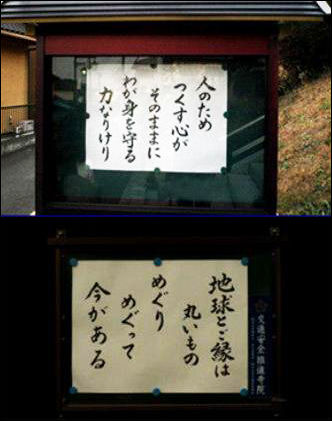 人のため
つくす心が
そのままに
わが身を守る
力なりけり
地球とご縁は
丸いもの
めぐり
めぐって
今がある
交通安全推進寺院